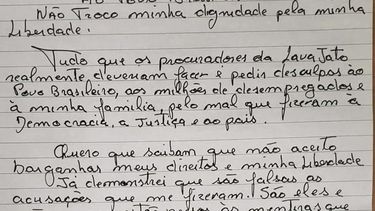 Não Troco minha dignidade pela minha
Liberdade.
Tudo que os procuradores da Lava Jato
realmente deveriam fazer é pedir desculpas ao
Povo Brasileiro, aos milhões de desempregados e
à minha família, pelo mal que fizeram à
Democracia, à Justiça e ao país.
Quero que saibam que não aceito
barganhar meus direitos e minha Liberdade
Já demonstrei que são falsas as
acusações que me fizeram. São eles e
as mentiras que